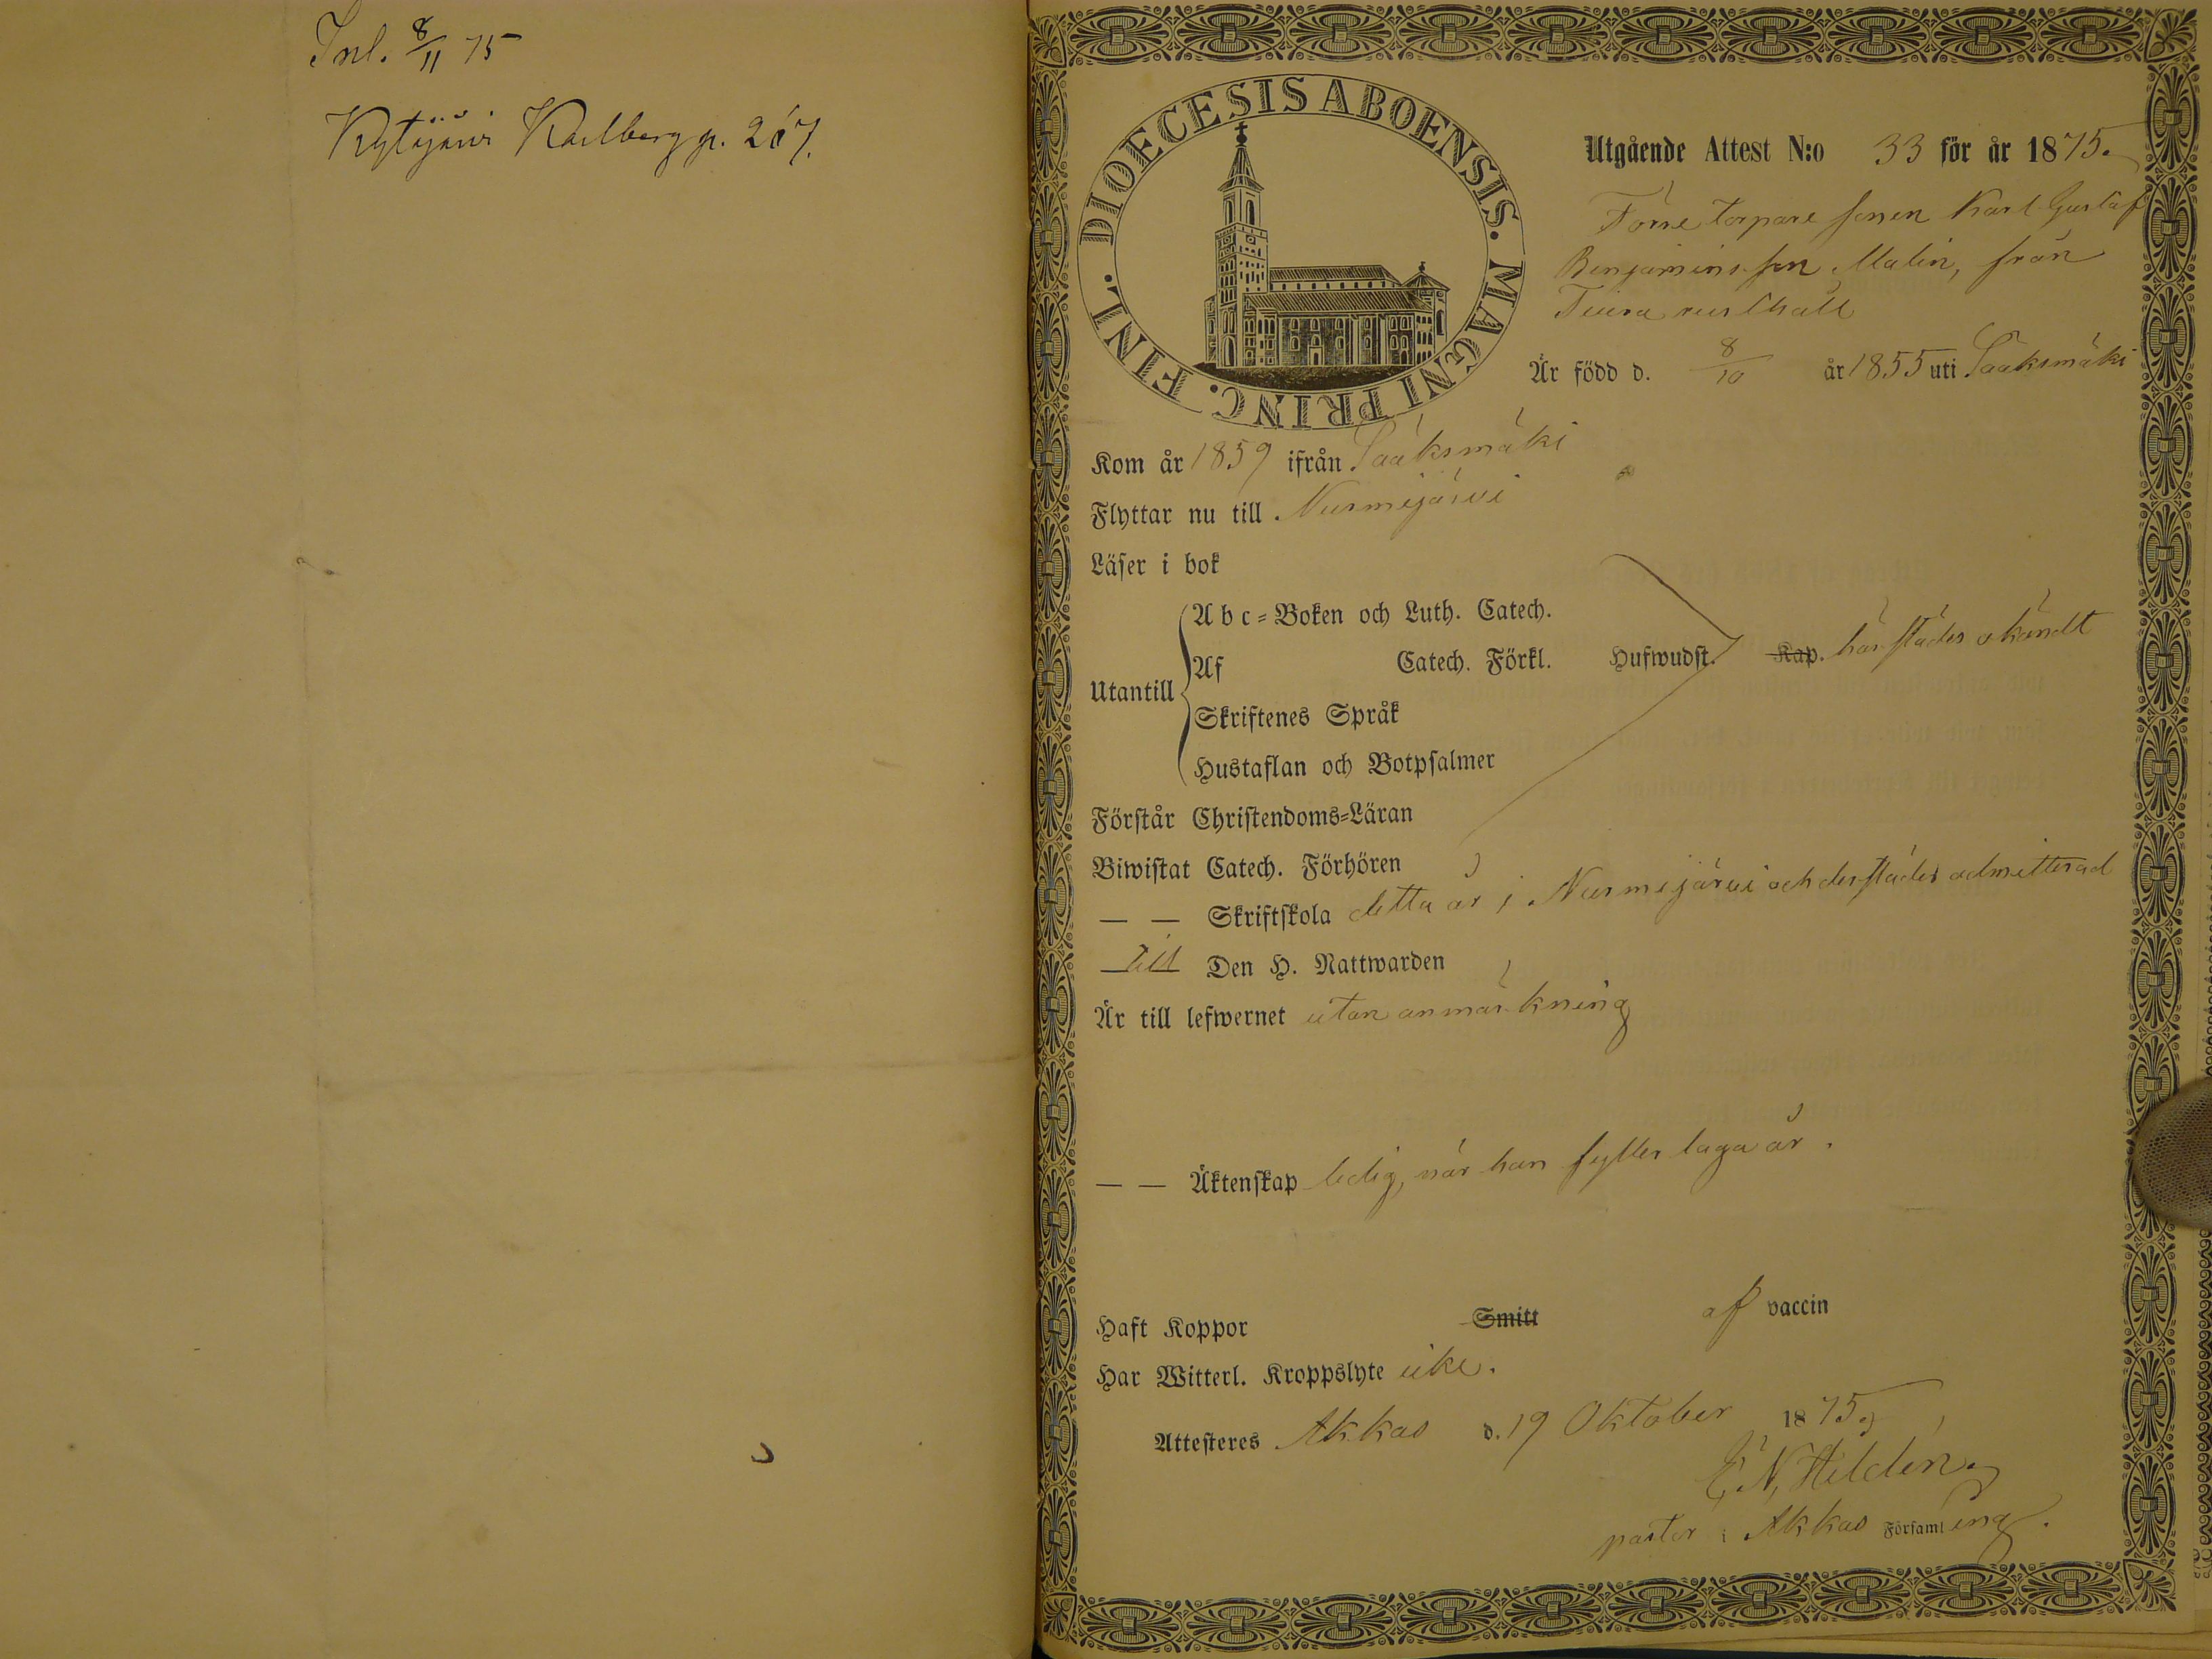 Inl. 8/11 75
Kytäjärvi Karlberg p. 267.
DIOECESIS ABOENSIS. MAGNI PRINC. FINL.
Utgående Attest N:o 33 för år 1875.
Förre torpare sonen Karl Gustaf
Benjamins son Malin, från
rusthåll
Är född d. 8/10 år 1855 uti Sääksmäki
Kom år 1859 ifrån Sääksmäki
Flyttar nu till Nurmijärvi
Läser i bok
Utantill
Abc-Boken och Luth. Catech.
Af Catech. Förkl. Hufwudst. Kap. härstädes okändt
Skriftenes Språk
Hustaflan och Botpsalmer
Förstår Christendoms-Läran
Biwistat Catech. Förhören
— — Skriftskola detta år i Nurmijärvi och derstädes admitterad
till Den H. Nattwarden
Är till lefwernet utan anmärkning
— — Äktenskap ledig, när han fyller laga år.
Haft Koppor Smitt af vaccin
Har Witterl. Kroppslyte icke.
Attesteres Akkas d. 19 Oktober 1875.
E. N. Hildén
pastor i Akkas Församling.